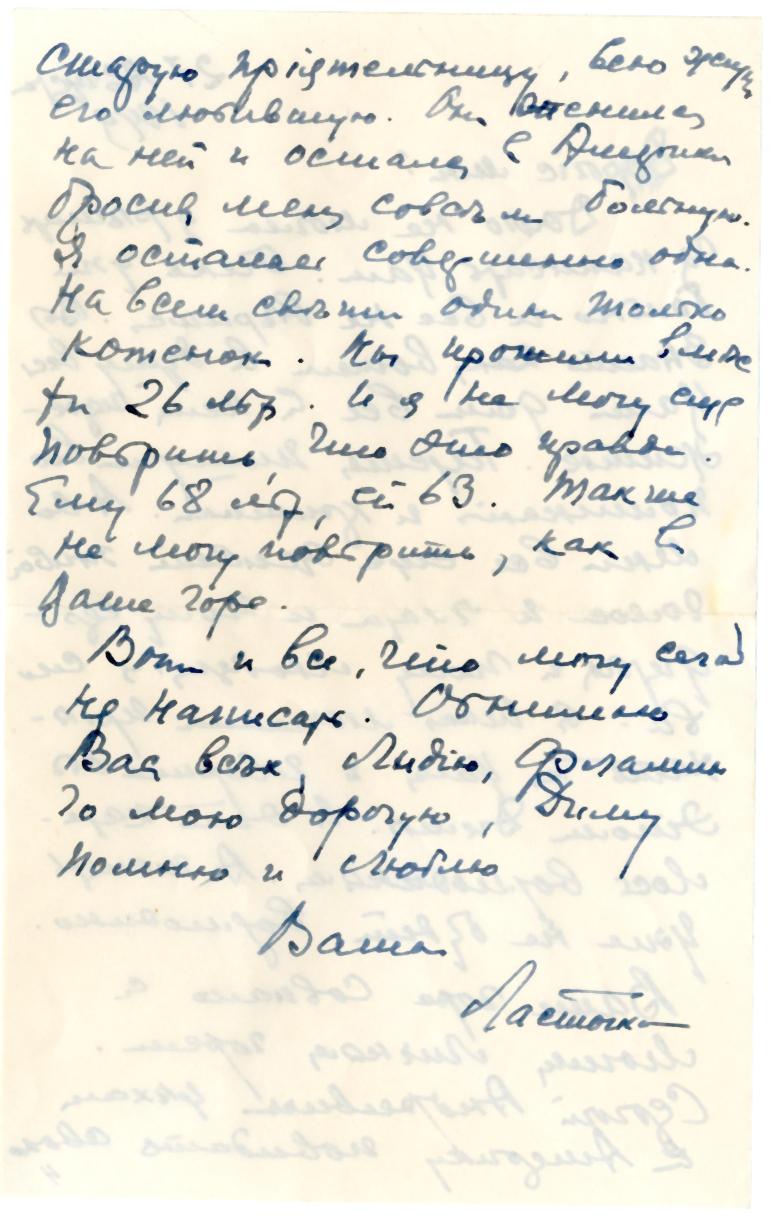 старую пріятельницу, всю жизнь
его любившую. Он женился
на ней и остался в Америки
бросив меня совсѣм больную.
Я осталась совершенно одна.
На всем свѣти один только
Котенок. Мы прожили вмѣс
ти 26 лѣт. И я не могу еще
повѣрить, что это правда.
Ему 68 лѣт, ей 63. Также
не могу повѣрить, как в
Ваше горе.
Вот и все, что могу сего
дня написать. Обнимаю
Вас всѣх, Лидію,
мою дорогую, Диму
Помню и люблю
Ваша
Ласточка